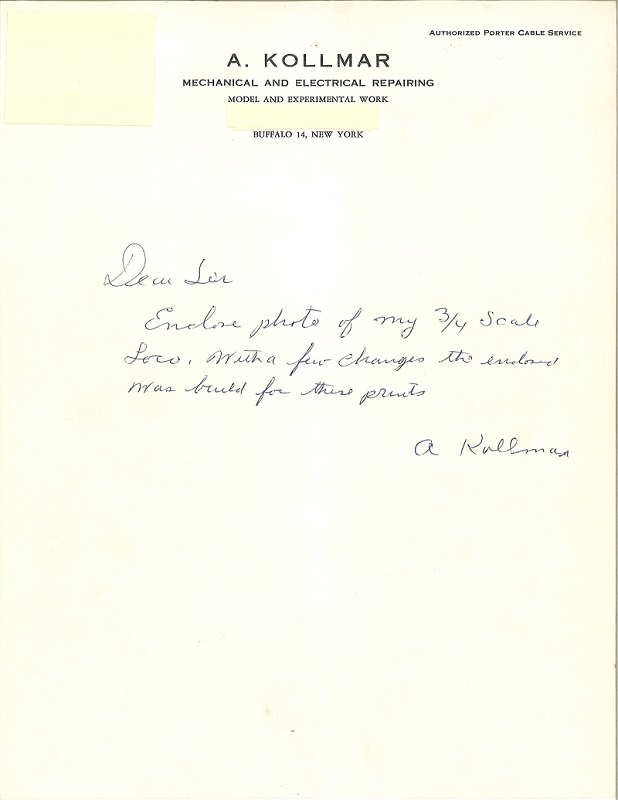 AUTHORIZED PORTER CABLE SERVICE
A. KOLLMAR
MECHANICAL AND ELECTRICAL REPAIRING
MODEL AND EXPERIMENTAL WORK
BUFFALO 14, NEW YORK
Dear Sir
Enclose photo of my 3/4 Scale
Loco. With a few changes the enclosed
was build for these prints
A Kollmar